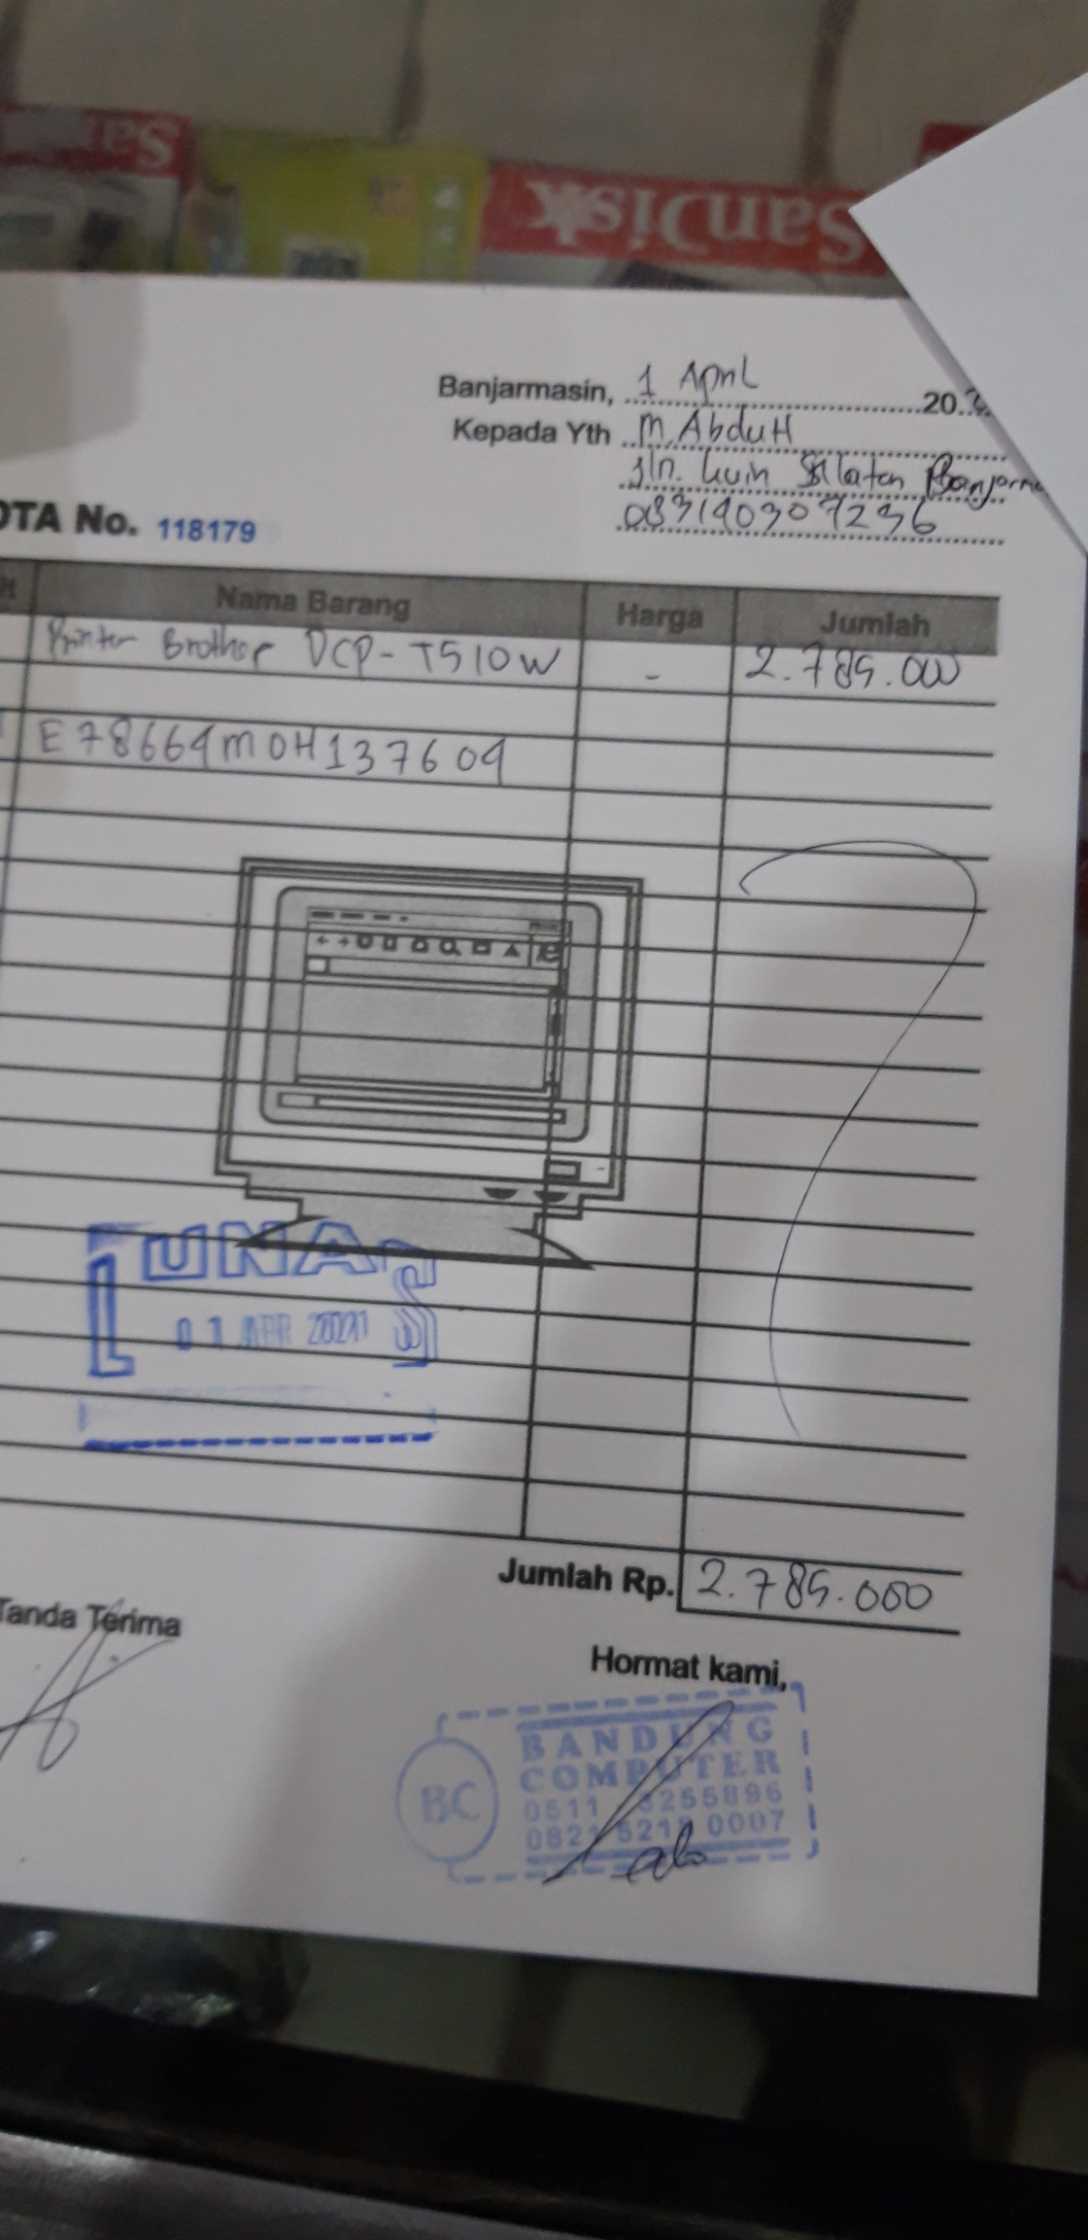 San
SanDisk
Banjarmasin, 1 April 20
Kepada Yth M. Abduh
Jln. Kuin Selatan Banjarm
083140307236
OTA No. 118179
Nama Barang Harga Jumlah
Printer Brother DCP-T510W - 2.785.000
E78664M0H137604
LUNAS
01 APR 2021
Jumlah Rp. 2.785.000
Tanda Terima
Hormat kami,
BC
BANDUNG
COMPUTER
0511 3255896
0821 5217 0007